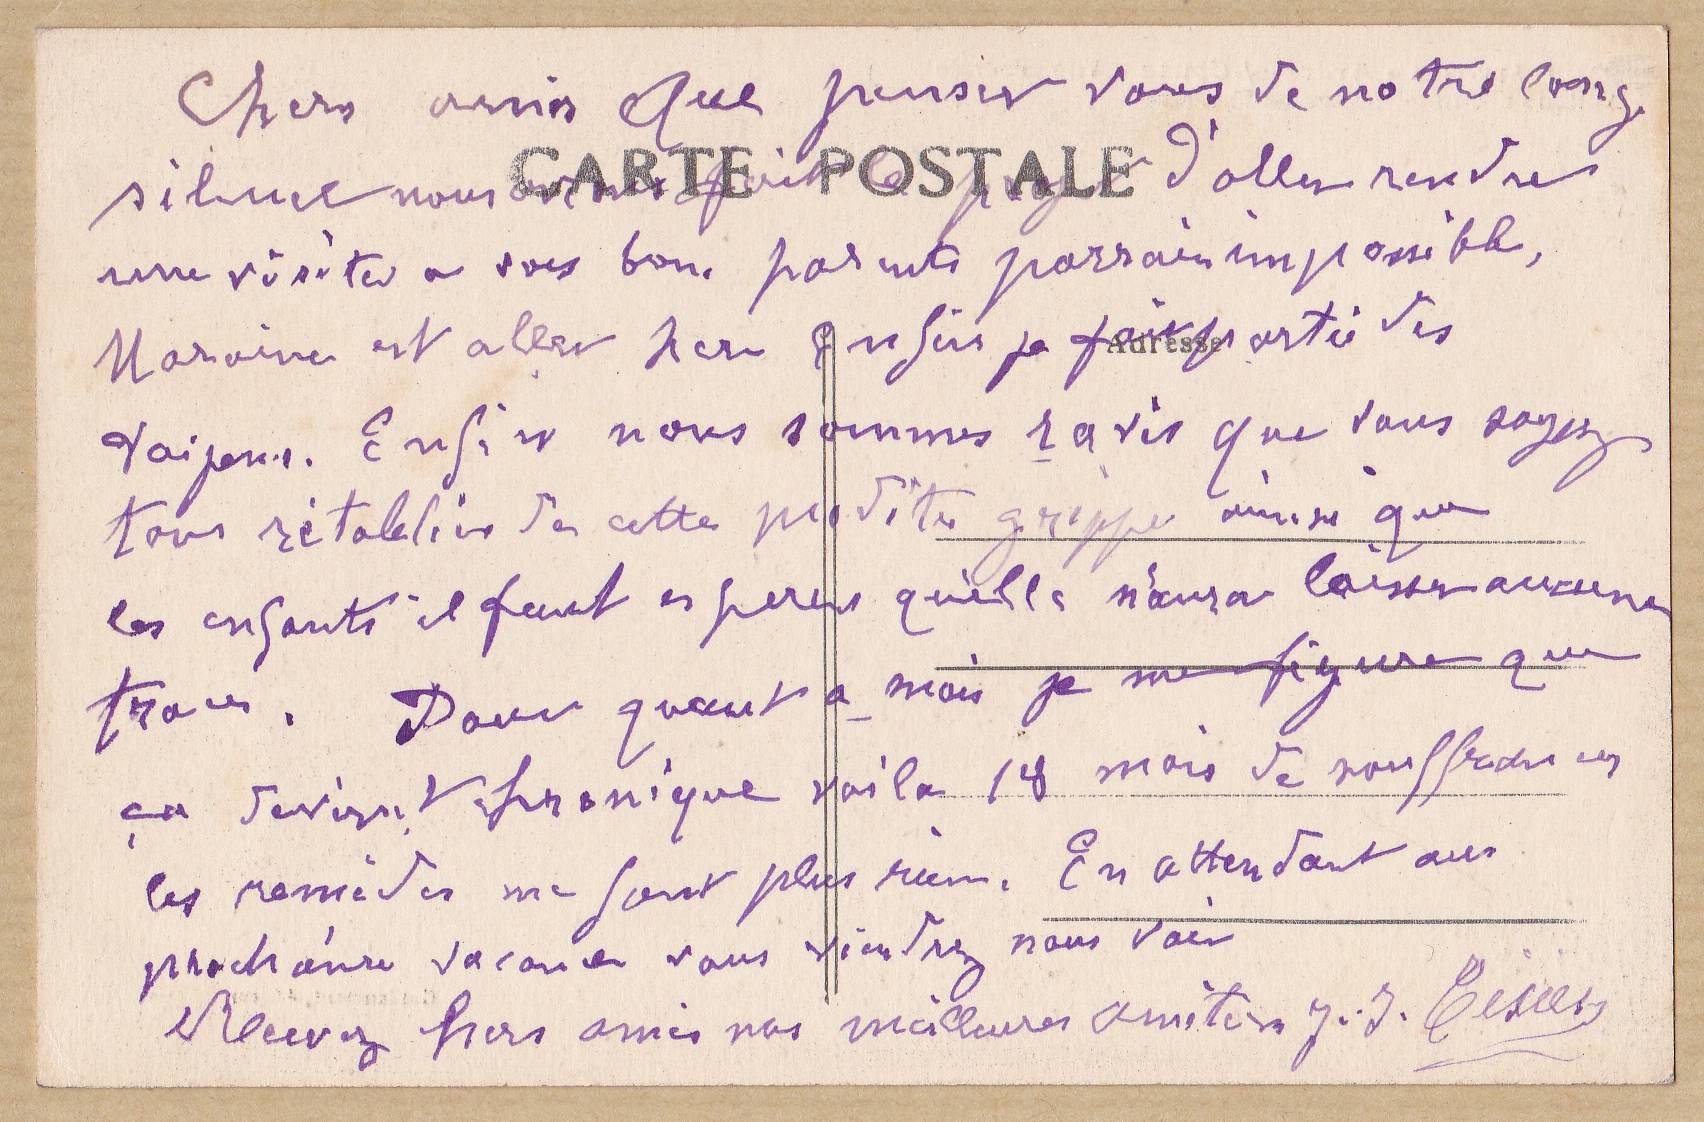 Chers amis Que penser vous de notre long
CARTE POSTALE
silence nous avons fait le projet d'aller rendre
une visite a vos bons parents parrain impossible,
Adresse
Maraine est aller hers Enfin je fait partie des
Enfin nous sommes ravis que vous soyez
tous rétablis de cette petite grippe ainsi que
les enfants il faut esperer qu'elle n'aura laisser aucune
trace. Pour quant a mois je me figure que
ça devient chronique voila 18 mois de souffrances
les remèdes me font plus rien. En attendant aux
prochaine vacance vous viendrez nous voir
Recevez chers amis nos meilleures amitiés J. J.